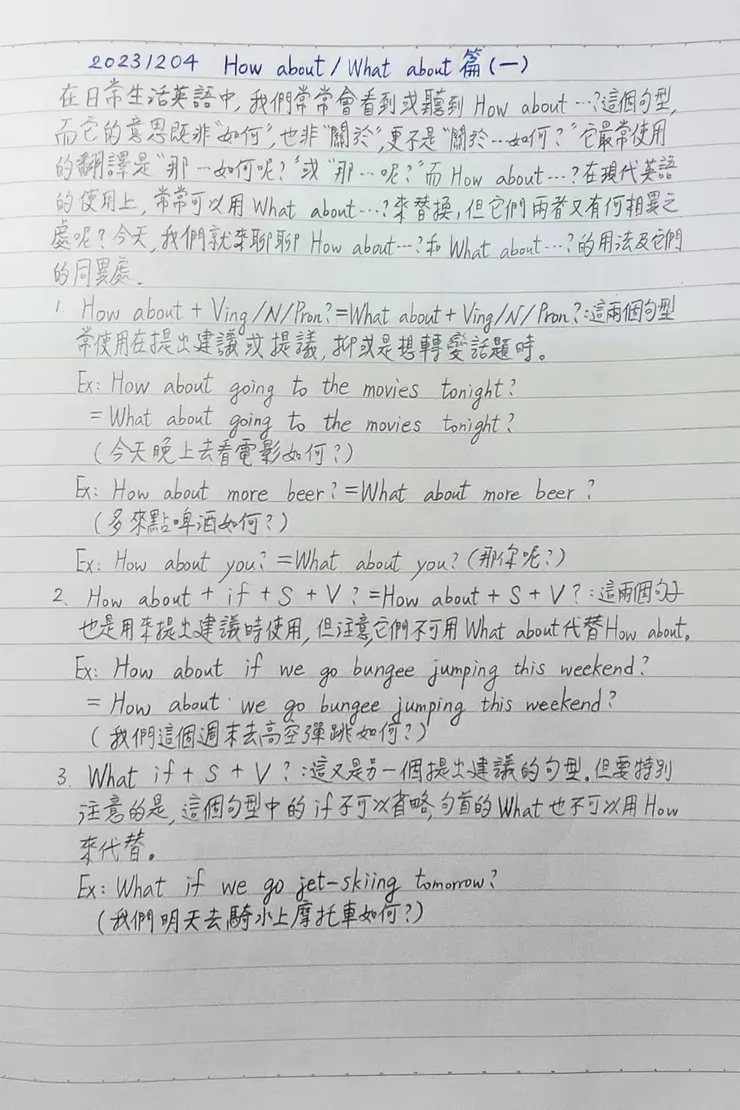 20231204 How about/What about篇(一)
在日常生活英語中,我們常常會看到或聽到How about…?這個句型,
而它的意思既非"如何",也非"關於",更不是"關於…如何?"它最常使用
的翻譯是"那…如何呢?"或"那…呢?"而How about…?在現代英語
的使用上,常常可以用What about…?來替換,但它們兩者又有何相異之
處呢?今天,我們就來聊聊How about…?和What about…?的用法及它們
的同異處.
1. How about + Ving/N/Pron?=What about + Ving/N/Pron?:這兩個句型
常使用在提出建議或提議,抑或是想轉變話題時。
Ex: How about going to the movies tonight?
= What about going to the movies tonight?
(今天晚上去看電影如何?)
Ex: How about more beer?=What about more beer?
(多來點啤酒如何?)
Ex: How about you?=What about you?(那你呢?)
2. How about + if + S + V?=How about + S + V?:這兩個句子
也是用來提出建議時使用,但注意,它們不可用What about代替How about。
Ex: How about if we go bungee jumping this weekend?
= How about we go bungee jumping this weekend?
(我們這個週末去高空彈跳如何?)
3. What if + S + V?:這又是另一個提出建議的句型.但要特別
注意的是,這個句型中的if不可以省略,句首的What也不可以用How
來代替。
Ex: What if we go jet-skiing tomorrow?
(我們明天去騎水上摩托車如何?)